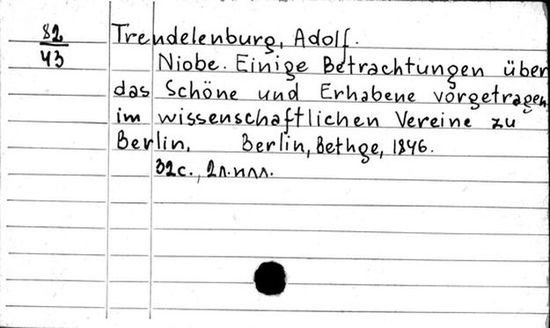 82
43
Trendelenburg, Adolf.
Niobe. Einige Betrachtungen über
das Schöne und Erhabene vorgetragen
im wissenschaftlichen Vereine zu
Berlin, Berlin, Bethge, 1846.
32c., 2л.илл.